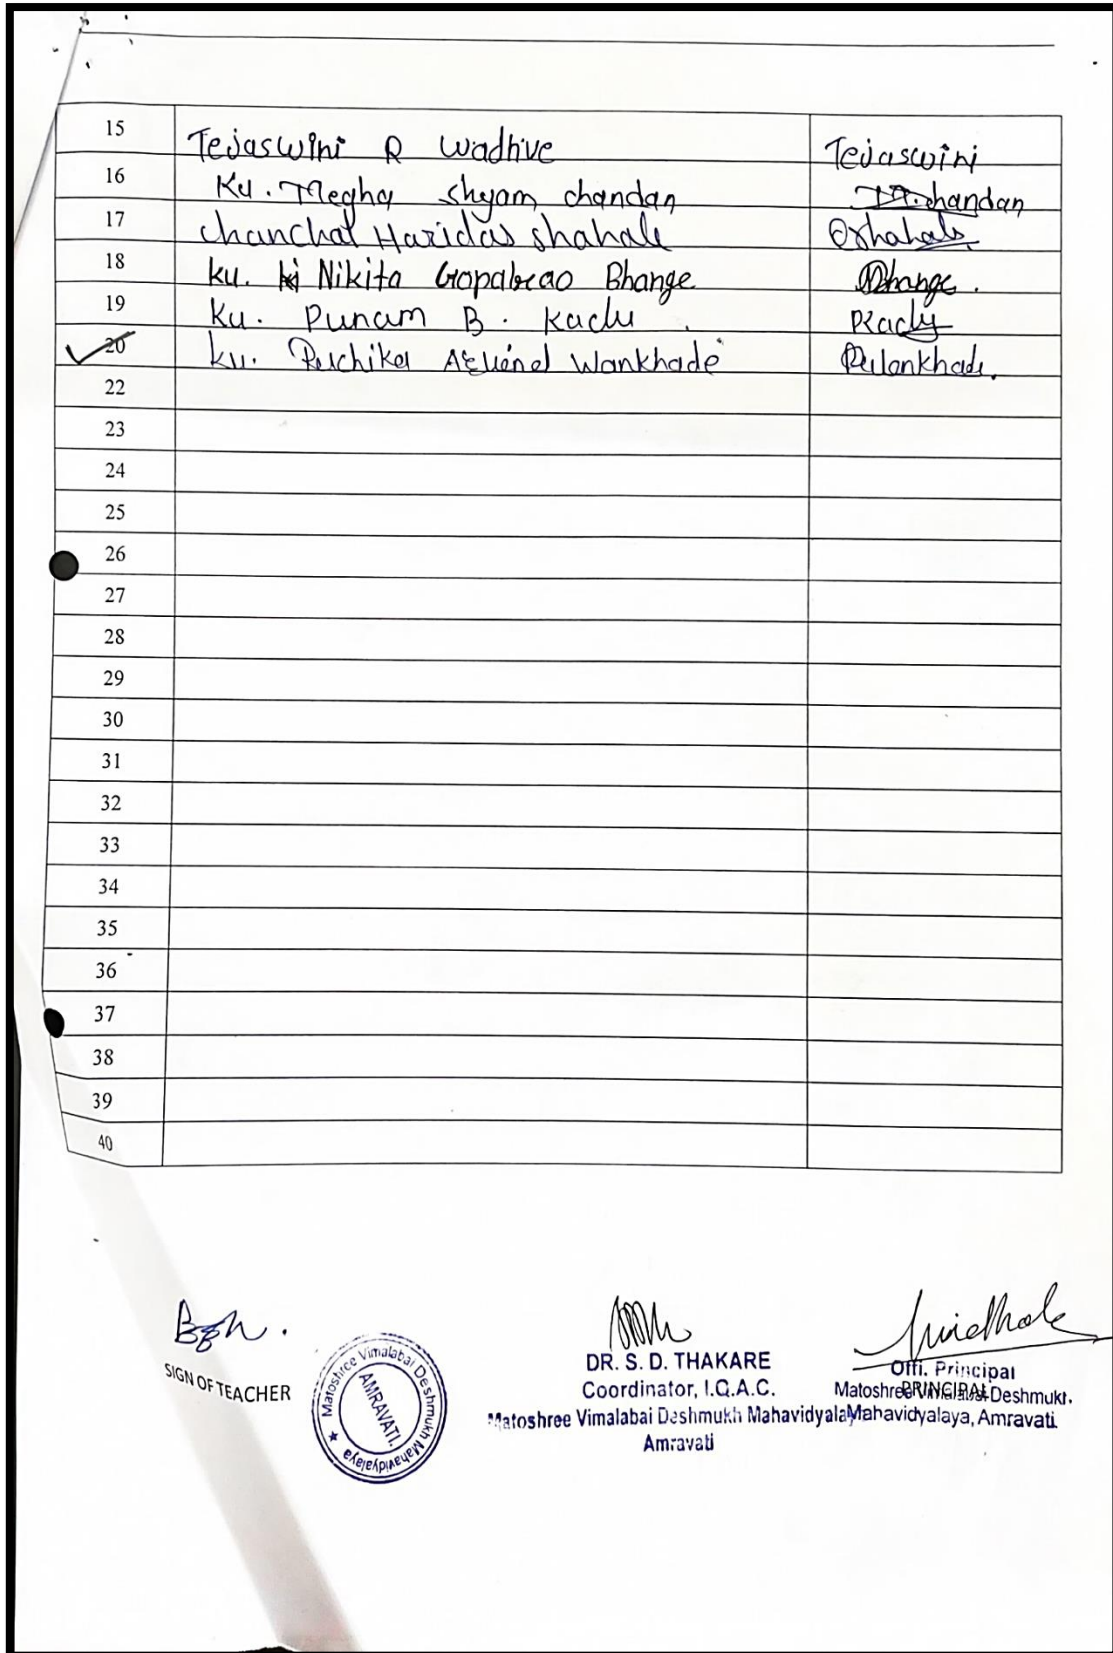 15 Tejaswini R Wadhive Tejaswini
16 Ku. Megha shyam chandan M.chandan
17 chanchal Haridas shahale Cshahale
18 ku. Nikita Gopalrao Bhange Bhange.
19 Ku. Punam B. Kadu. PKadu
20 ku. Ruchika Wankhade RWankhade.
22
23
24
25
26
27
28
29
30
31
32
33
34
35
36
37
38
39
40
SIGN OF TEACHER
Matoshree Vimalabai Deshmukh Mahavidyalaya ★
AMRAVATI.
DR. S. D. THAKARE
Coordinator, I.Q.A.C.
Matoshree Vimalabai Deshmukh Mahavidyalay
Amravati
Offi. Principal
PRINCIPAL
Matoshree Deshmukh
Mahavidyalaya, Amravati.